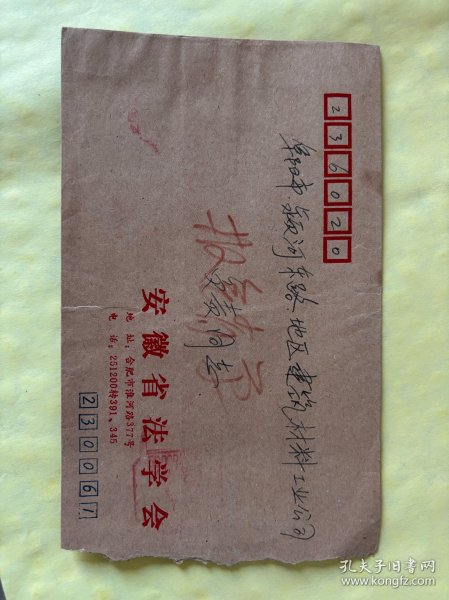 236020
阜阳市颍河东路地区建筑材料工业公司
同志
安徽省法学会
地址：合肥市淮河路377号
电话：251200转391、345
230061
孔夫子旧书网
www.kongfz.com